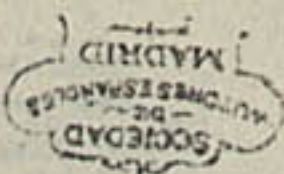 SOCIEDAD
— DE —
AUTORES ESPAÑOLES
MADRID